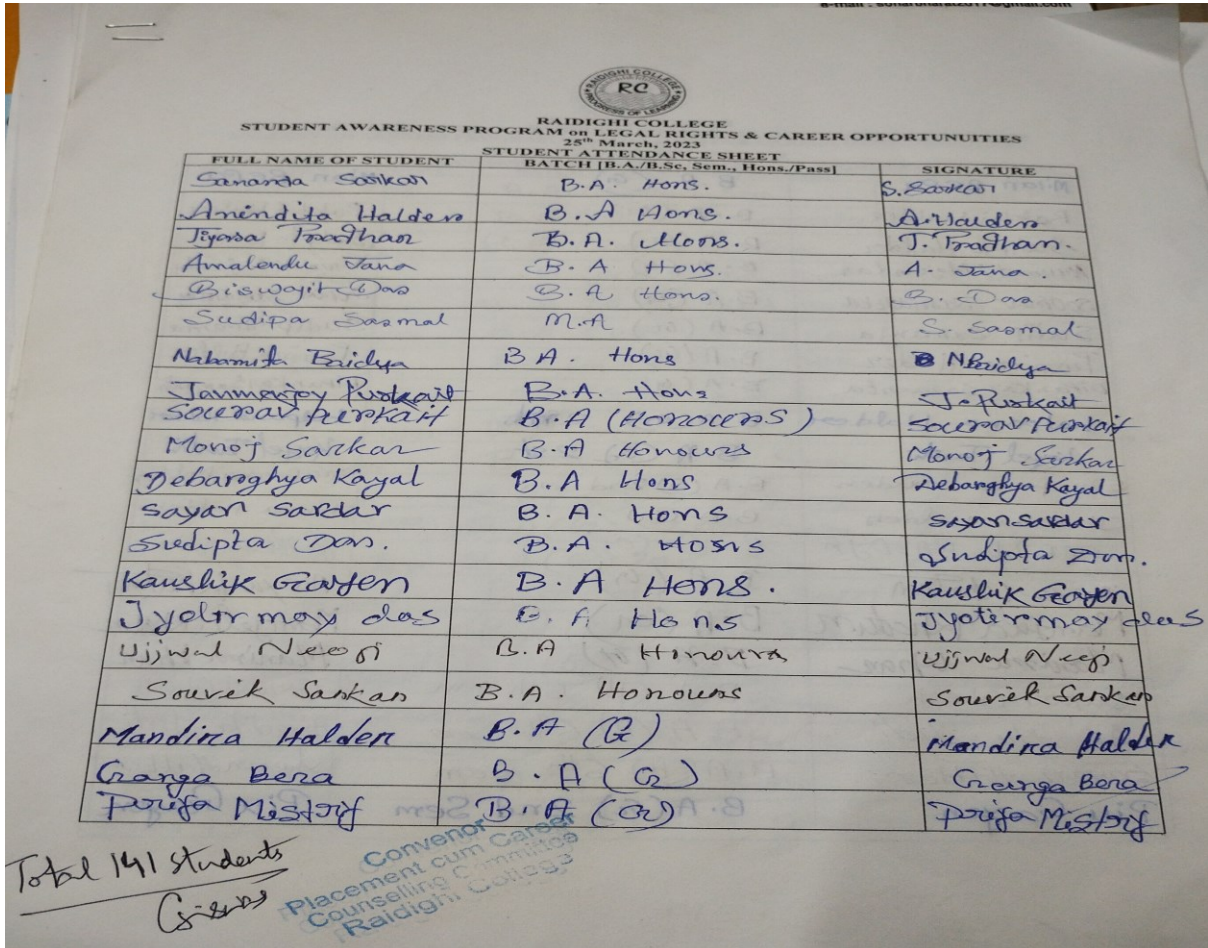 e-mail : sonarbharat2011@gmail.com
RAIDIGHI COLLEGE
RC
PROGRESS OF LEARNING
RAIDIGHI COLLEGE
STUDENT AWARENESS PROGRAM on LEGAL RIGHTS & CAREER OPPORTUNUITIES
25th March, 2023
STUDENT ATTENDANCE SHEET
FULL NAME OF STUDENT BATCH [B.A./B.Sc, Sem., Hons./Pass] SIGNATURE
Sananda Sarkar B.A. Hons. S. Sarkar
Anindita Halder B.A Hons. A. Halder
Jiyasa Pradhan B.A. Hons. J. Pradhan.
Amalendu Jana B.A Hons. A. Jana.
Biswajit Das B.A Hons. B. Das
Sudipa Sasmal M.A S. Sasmal
Nabamita Baidya B A. Hons N Baidya
Janmenjoy Purkait B.A. Hons J. Purkait
Sourav Purkait B.A (Honours) Sourav Purkait
Monoj Sarkar B.A Honours Monoj Sarkar
Debarghya Kayal B.A Hons Debarghya Kayal
Sayan Sardar B.A. Hons Sayan Sardar
Sudipta Das. B.A. Hons Sudipta Das.
Kaushik Gayen B.A Hons. Kaushik Gayen
Jyotirmay das B.A Hons Jyotirmay das
Ujjwal Neogi B.A Honours Ujjwal Neogi
Souvik Sarkar B.A. Honours Souvik Sarkar
Mandira Halder B.A (G) Mandira Halder
Ganga Bera B.A (G) Ganga Bera
Priya Mistry B.A (G) Priya Mistry
Total 141 students
Convenor
Placement cum Career
Counselling Committee
Raidighi College